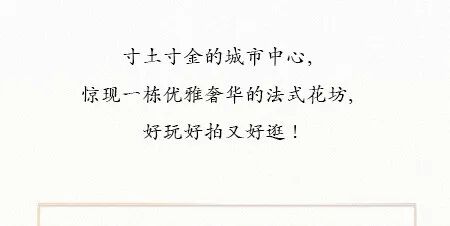 寸土寸金的城市中心，
惊现一栋优雅奢华的法式花坊，
好玩好拍又好逛！